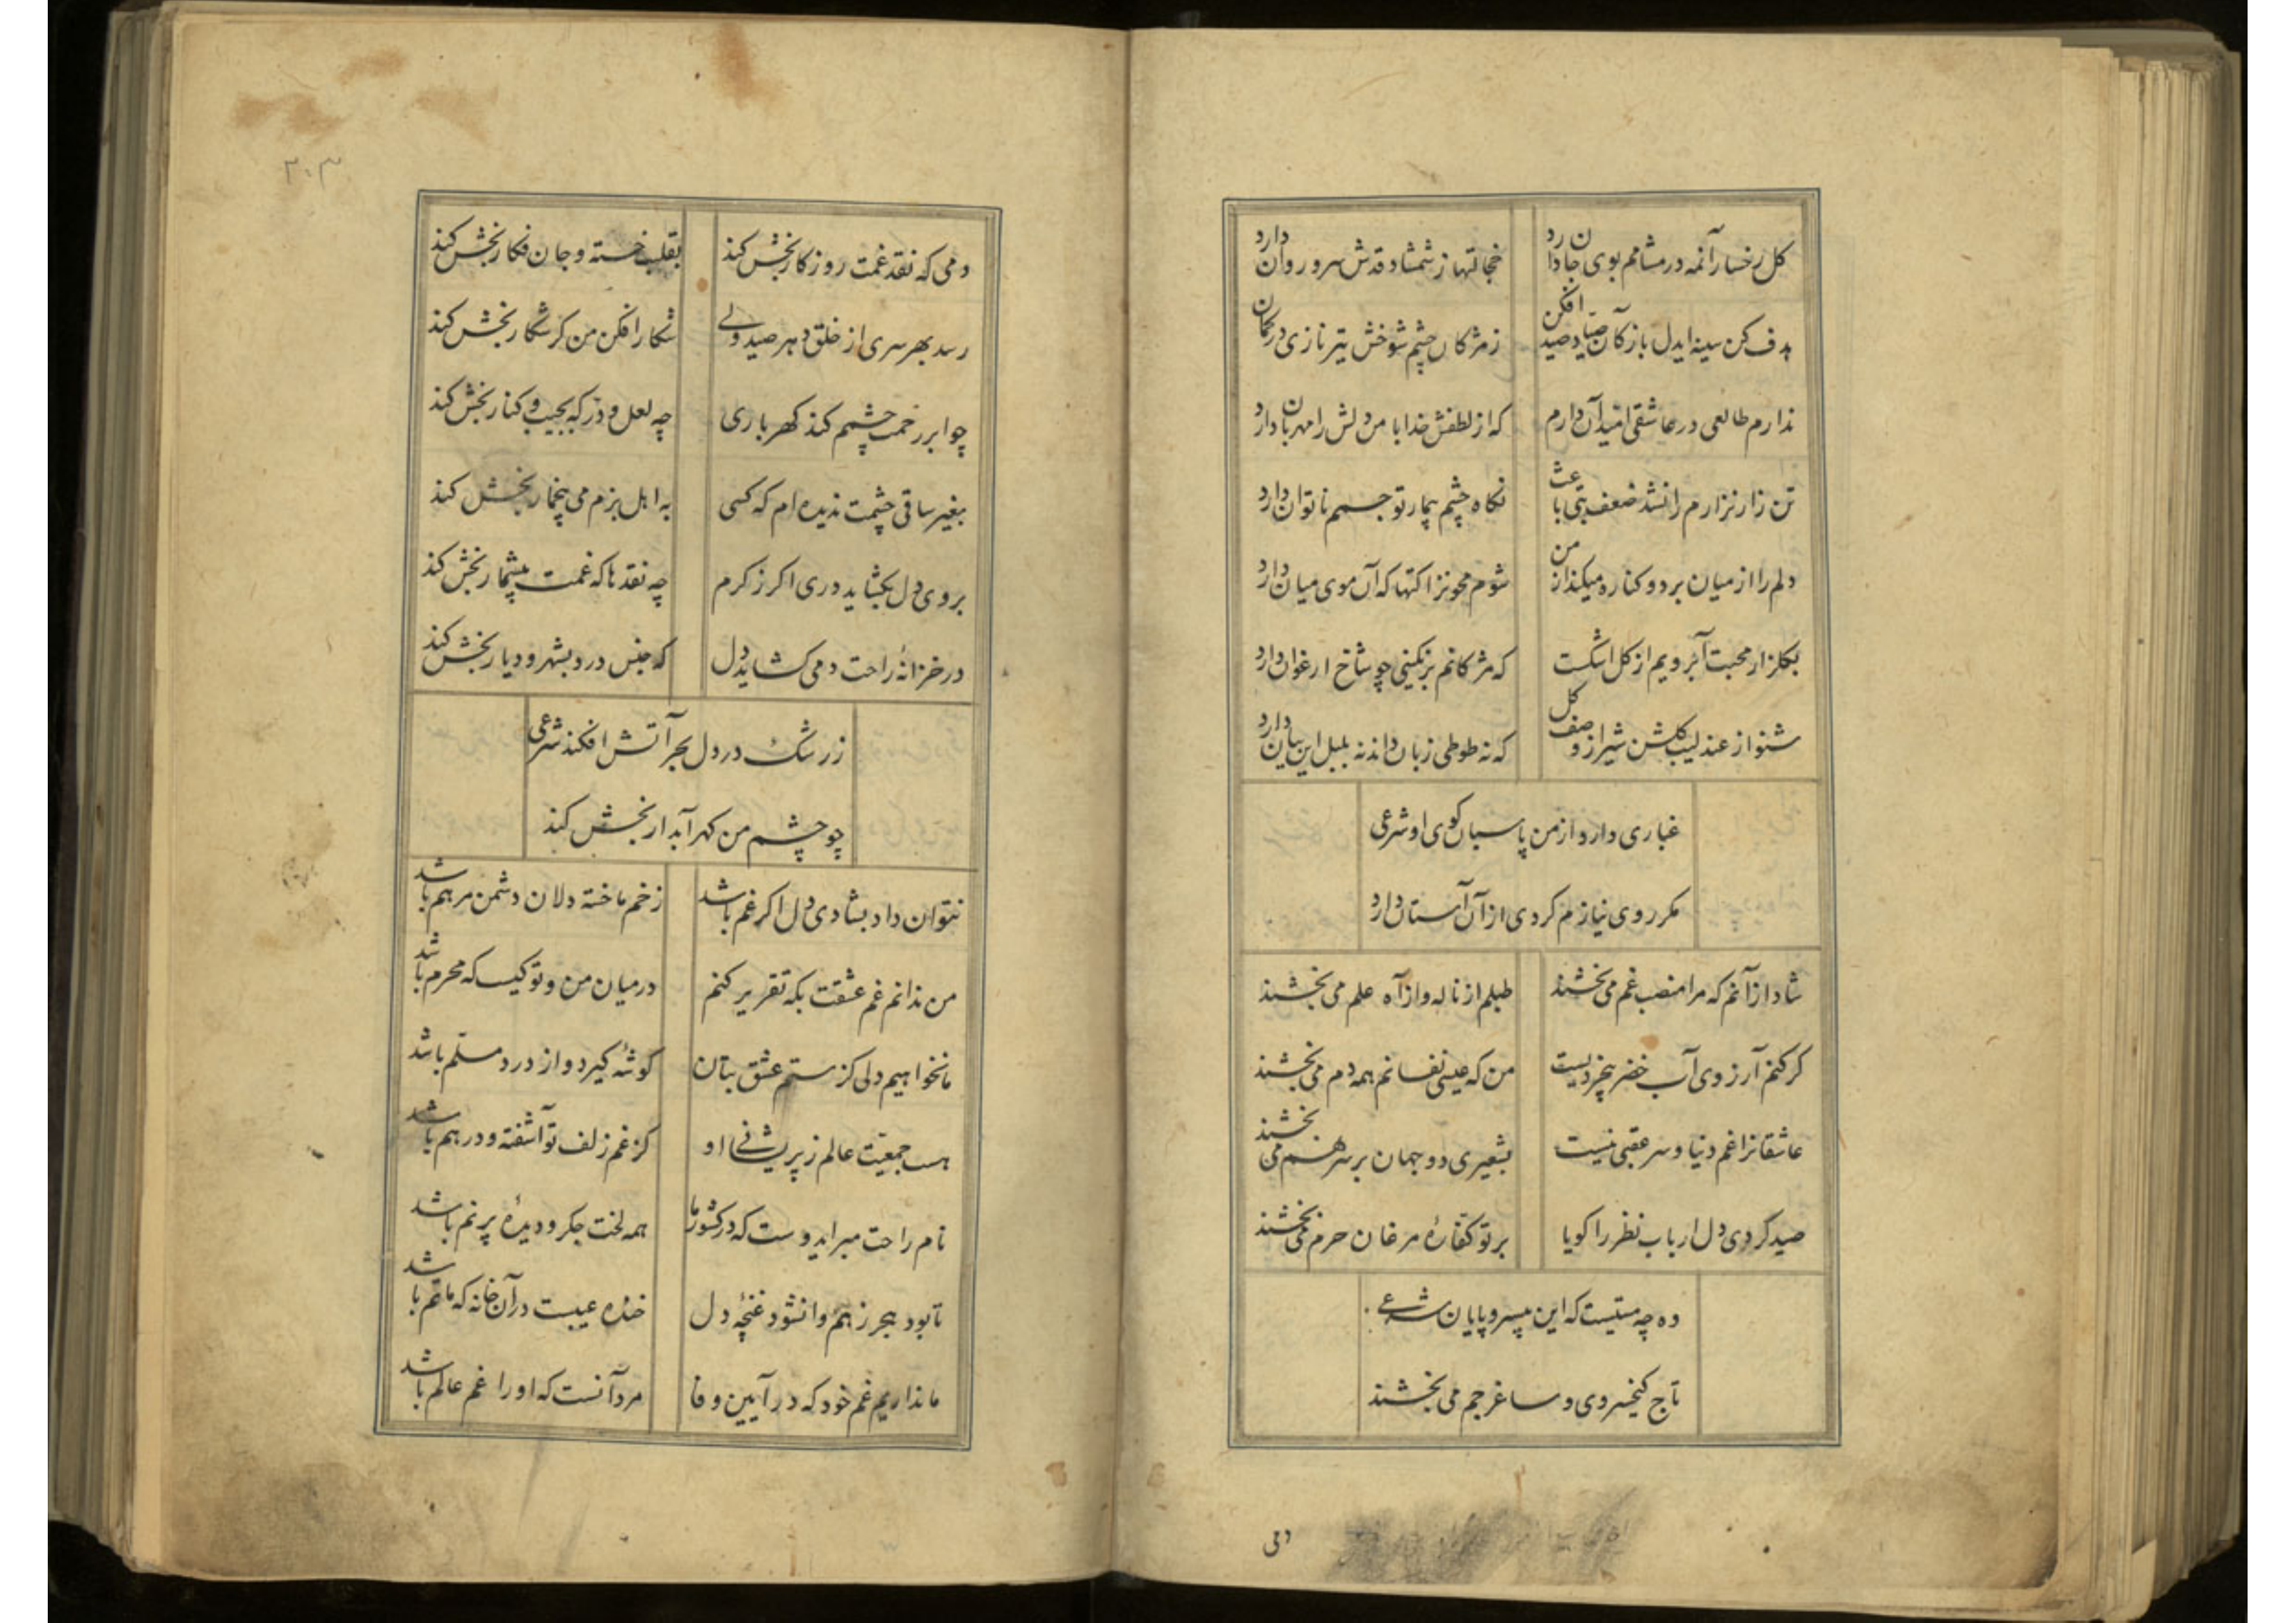 کل رخسار آنمه در مشامم بوی جان دارد خجالتها ز شمشاد قدش سرو روان دارد
هدف کن سینه ایدل باز کان صیاد صید افکن ز مژکان چشم شوخش تیر نازی در کمان دارد
ندارم طالعی در عاشقی امید آن دارم که از لطفش خدا با من دلش را مهربان دارد
تن زار نزارم را نشد ضعف تبی باعث نکاه چشم بیمار تو جسمم ناتوان دارد
دلم را از میان برد و کناره میکند از من شوم محو نزاکتها که آن موی میان دارد
بکلزار محبت آبرویم از کل اشکست که مژکانم برنکینی چو شاخ ارغوان دارد
شنو از عندلیب کلشن شیراز وصف کل که نه طوطی زبان داند نه بلبل این بیان دارد
غباری دارد از من پاسبان کوی او شرعی
مکر روی نیازم کردی از آن آستان دارد
شاد از آنم که مرا منصب غم می بخشند طبلم از ناله و از آه علم می بخشند
کر کنم آرزوی آب خضر بیخردیست من که عیسی نفسانم همه دم می بخشند
عاشقانرا غم دنیا و سر عقبی نیست بشعیری دو جهان بر سر هم می بخشند
صید کردی دل ارباب نظر را کویا بر تو کفارۀ مرغان حرم می بخشند
ده چه مستیست که این بیسروپایان شرعی
تاج کیخسروی و ساغر جم می بخشند
دمی
۳۰۳
دمی که نقد غمت روزکار بخش کند بقلب خسته و جان فکار بخش کند
رسد بهر سری از خلق دهر صید ولی شکار افکن من کر شکار بخش کند
چو ابر رحمت چشمم کند کهرباری چه لعل و در که بجیب و کنار بخش کند
بغیر ساقی چشمت ندیده ام که کسی به اهل بزم می بیخمار بخش کند
بروی دل بکشاید دری اکر ز کرم چه نقدها که غمت بیشمار بخش کند
در خزانۀ راحت دمی کشاید دل که جنس درد بشهر و دیار بخش کند
ز رشک در دل بحر آتش افکند شرعی
چو چشم من کهر آبدار بخش کند
نتوان داد بشادی دل اکر غم باشد زخم ما خسته دلان دشمن مرهم باشد
من ندانم غم عشقت بکه تقریر کنم در میان من و تو کیست که محرم باشد
ما نخواهیم دلی کز ستم عشق بتان کوشۀ کیرد و از درد مسلم باشد
هست جمعیت عالم ز پریشانی او کز غم زلف تو آشفته و درهم باشد
نام راحت مبر ایدوست که در کشور ما همه لخت جکر و دیدۀ پرنم باشد
تا بود هجر ز هم وا نشود غنچۀ دل خنده عیبست در آن خانه که ماتم باشد
ما نداریم غم خود که در آیین وفا مرد آنست که او را غم عالم باشد